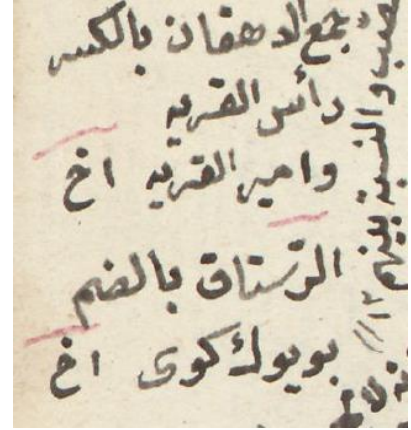 جمع الدهقان بالكسر
رأس القريه
وامير القريه اخ
الرستاق بالضم
بويوك كوى اخ